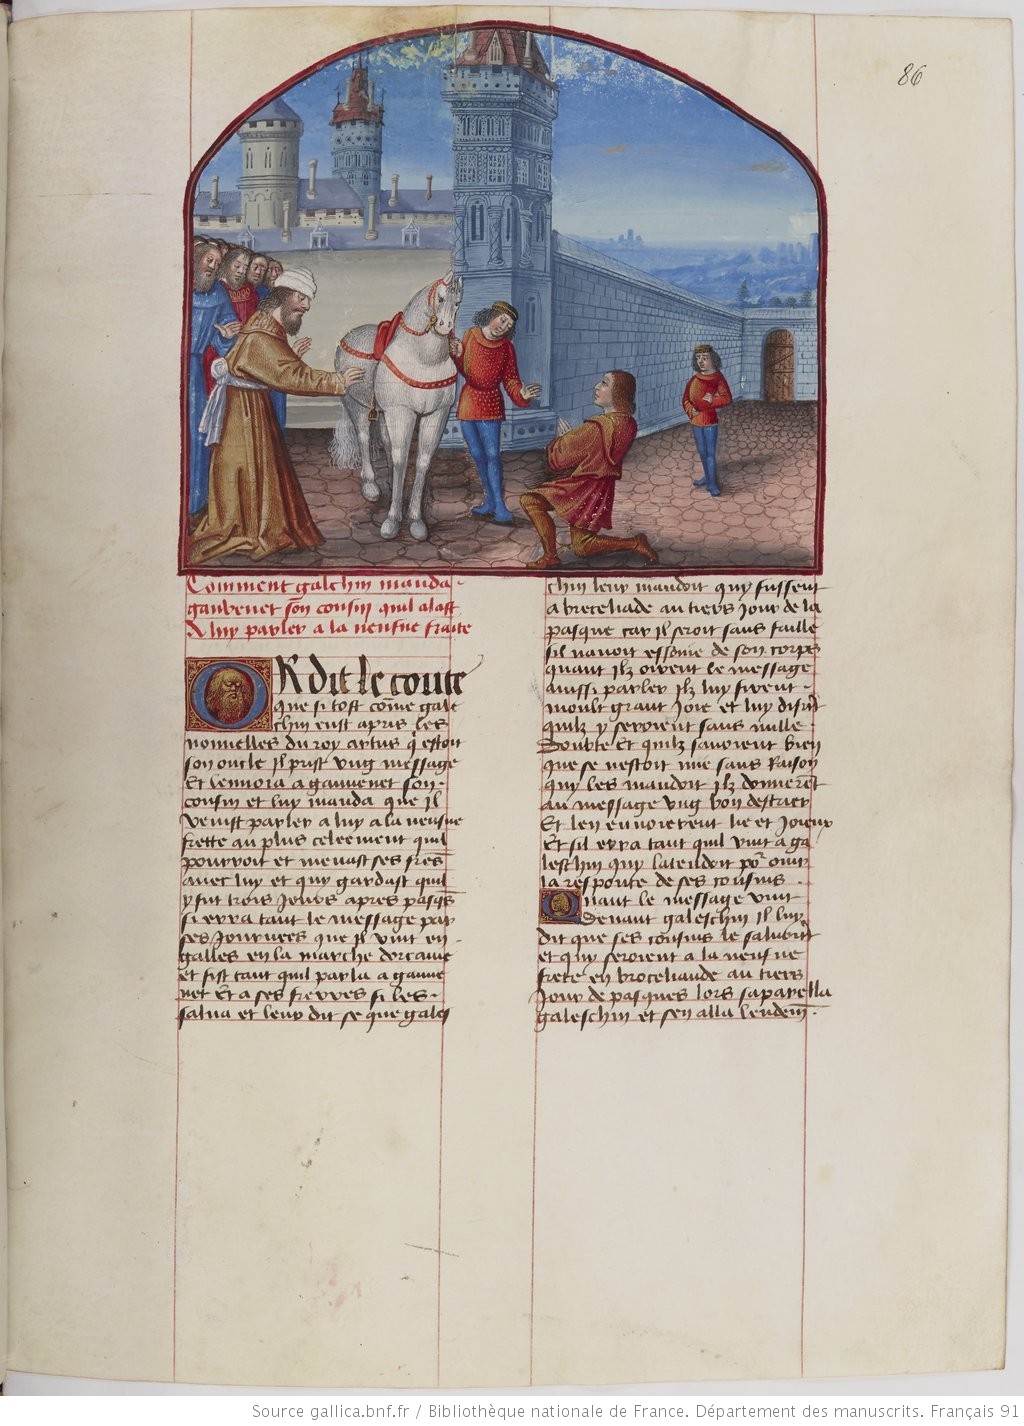 86
Comment galchin manda
gauvenet son cousin quil alast
A luy parler a la neufue fraite
OR dit le conte
que si tost cõme gale
chin eust apris les
nouuelles du roy artus q̃ estoit
son oncle il prist vng message
Et lenuoia a gauuenet son
cousin et luy manda que il
venist parler a luy a la neufue
frette au plus celeement quil
pourroit et menast ses fres̃
auec luy et quy gardast quil
y fut trois jours apres pasq̃s
si erra tant le message par
ses journees que il vint en
galles en la marche dorcanie
et fist tant quil parla a gauue
net Et a ses freres si les
salua et leur dit se que gales
chin leur mandoit quy fussent
a breceliade au tiers jour de la
pasque car il seroit sans faille
sil nauoit essoine de son corps
quant ilz oirent le message
ainssi parler ilz luy firent
moult grant joie et luy disrẽt
quilz y seroient sans nulle
Doubte Et quilz sauoient bien
que se nestoit mie sans Raison
quy les mandoit ilz donnerẽt
au message vng bon destrier
Et len enuoierent lie et joieux
Et sil erra tant quil vint a ga
leschin quy latendoit po᷑ ouir
la response de ses cousins
Quant le message vint
deuant galeschin il luy
dit que ses cousins le saluoiẽt
et quy seroient a la neufue
frete en broceliande au tiers
jour de pasques lors sapareilla
galeschin et sen alla lendem̃
Source gallica.bnf.fr / Bibliothèque nationale de France. Département des manuscrits. Français 91